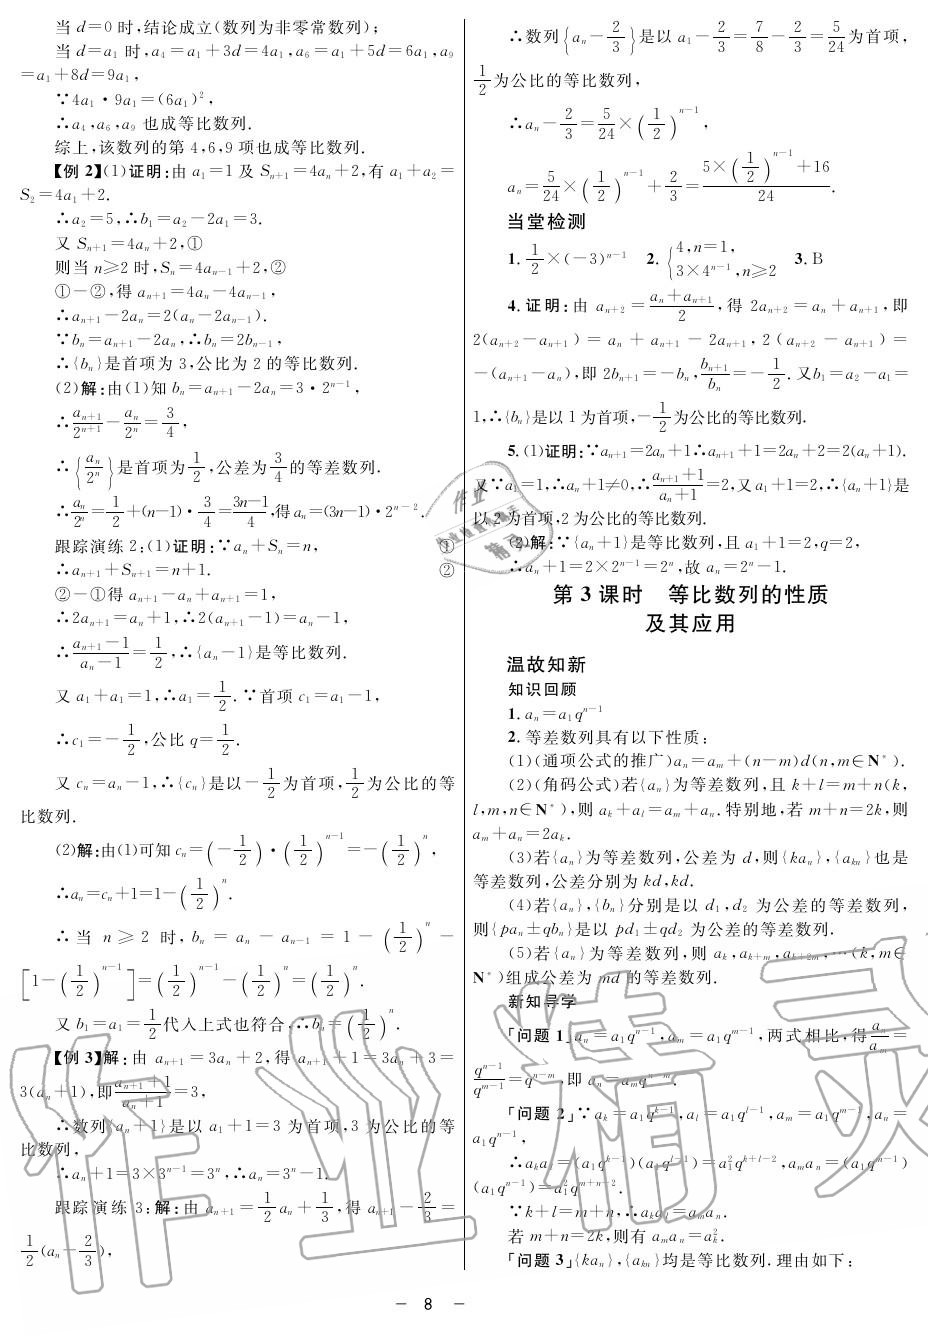 当 d=0 时,结论成立(数列为非零常数列);
当 d=a₁ 时,a₄=a₁+3d=4a₁,a₆=a₁+5d=6a₁,a₉
=a₁+8d=9a₁,
∵4a₁·9a₁=(6a₁)²,
∴a₄,a₆,a₉ 也成等比数列.
综上,该数列的第 4,6,9 项也成等比数列.
【例 2】(1)证明:由 a₁=1 及 Sₙ₊₁=4aₙ+2,有 a₁+a₂=
S₂=4a₁+2.
∴a₂=5,∴b₁=a₂-2a₁=3.
又 Sₙ₊₁=4aₙ+2,①
则当 n≥2 时,Sₙ=4aₙ₋₁+2,②
①-②,得 aₙ₊₁=4aₙ-4aₙ₋₁,
∴aₙ₊₁-2aₙ=2(aₙ-2aₙ₋₁).
∵bₙ=aₙ₊₁-2aₙ,∴bₙ=2bₙ₋₁,
∴{bₙ}是首项为 3,公比为 2 的等比数列.
(2)解:由(1)知 bₙ=aₙ₊₁-2aₙ=3·2ⁿ⁻¹,
∴aₙ₊₁/2ⁿ⁺¹-aₙ/2ⁿ=3/4,
∴{aₙ/2ⁿ}是首项为1/2,公差为3/4的等差数列.
∴aₙ/2ⁿ=1/2+(n-1)·3/4=(3n-1)/4,得aₙ=(3n-1)·2ⁿ⁻².
跟踪演练 2:(1)证明:∵aₙ+Sₙ=n, ①
∴aₙ₊₁+Sₙ₊₁=n+1. ②
②-①得 aₙ₊₁-aₙ+aₙ₊₁=1,
∴2aₙ₊₁=aₙ+1,∴2(aₙ₊₁-1)=aₙ-1,
∴(aₙ₊₁-1)/(aₙ-1)=1/2,∴{aₙ-1}是等比数列.
又 a₁+a₁=1,∴a₁=1/2.∵首项 c₁=a₁-1,
∴c₁=-1/2,公比 q=1/2.
又 cₙ=aₙ-1,∴{cₙ}是以-1/2为首项,1/2为公比的等
比数列.
(2)解:由(1)可知 cₙ=(-1/2)·(1/2)ⁿ⁻¹=-(1/2)ⁿ,
∴aₙ=cₙ+1=1-(1/2)ⁿ.
∴当 n≥2 时, bₙ=aₙ-aₙ₋₁=1-(1/2)ⁿ-
[1-(1/2)ⁿ⁻¹]=(1/2)ⁿ⁻¹-(1/2)ⁿ=(1/2)ⁿ.
又 b₁=a₁=1/2代入上式也符合,∴bₙ=(1/2)ⁿ.
【例 3】解:由 aₙ₊₁=3aₙ+2,得 aₙ₊₁+1=3aₙ+3=
3(aₙ+1),即(aₙ₊₁+1)/(aₙ+1)=3,
∴数列{aₙ+1}是以 a₁+1=3 为首项,3 为公比的等
比数列,
∴aₙ+1=3×3ⁿ⁻¹=3ⁿ,∴aₙ=3ⁿ-1.
跟踪演练 3:解:由 aₙ₊₁=1/2 aₙ+1/3,得 aₙ₊₁-2/3=
1/2(aₙ-2/3),
∴数列{aₙ-2/3}是以 a₁-2/3=7/8-2/3=5/24为首项,
1/2为公比的等比数列,
∴aₙ-2/3=5/24×(1/2)ⁿ⁻¹,
aₙ=5/24×(1/2)ⁿ⁻¹+2/3=(5×(1/2)ⁿ⁻¹+16)/24.
当堂检测
1. 1/2×(-3)ⁿ⁻¹ 2. {4,n=1, 3×4ⁿ⁻¹,n≥2 3. B
4. 证明:由 aₙ₊₂=(aₙ+aₙ₊₁)/2,得 2aₙ₊₂=aₙ+aₙ₊₁,即
2(aₙ₊₂-aₙ₊₁)=aₙ+aₙ₊₁-2aₙ₊₁,2(aₙ₊₂-aₙ₊₁)=
-(aₙ₊₁-aₙ),即 2bₙ₊₁=-bₙ,bₙ₊₁/bₙ=-1/2.又b₁=a₂-a₁=
1,∴{bₙ}是以 1 为首项,-1/2为公比的等比数列.
5. (1)证明:∵aₙ₊₁=2aₙ+1∴aₙ₊₁+1=2aₙ+2=2(aₙ+1).
又∵a₁=1,∴aₙ+1≠0,∴(aₙ₊₁+1)/(aₙ+1)=2,又 a₁+1=2,∴{aₙ+1}是
以 2 为首项,2 为公比的等比数列.
(2)解:∵{aₙ+1}是等比数列,且 a₁+1=2,q=2,
∴aₙ+1=2×2ⁿ⁻¹=2ⁿ,故 aₙ=2ⁿ-1.
第 3 课时 等比数列的性质
及其应用
温故知新
知识回顾
1. aₙ=a₁qⁿ⁻¹
2. 等差数列具有以下性质:
(1)(通项公式的推广)aₙ=aₘ+(n-m)d(n,m∈N*).
(2)(角码公式)若{aₙ}为等差数列,且 k+l=m+n(k,
l,m,n∈N*),则 aₖ+aₗ=aₘ+aₙ.特别地,若 m+n=2k,则
aₘ+aₙ=2aₖ.
(3)若{aₙ}为等差数列,公差为 d,则{kaₙ},{aₖₙ}也是
等差数列,公差分别为 kd,kd.
(4)若{aₙ},{bₙ}分别是以 d₁,d₂ 为公差的等差数列,
则{paₙ±qbₙ}是以 pd₁±qd₂ 为公差的等差数列.
(5)若{aₙ}为等差数列,则 aₖ,aₖ₊ₘ,aₖ₊₂ₘ,…(k,m∈
N*)组成公差为 md 的等差数列.
新知导学
「问题 1」aₙ=a₁qⁿ⁻¹,aₘ=a₁qᵐ⁻¹,两式相比,得aₙ/aₘ=
qⁿ⁻¹/qᵐ⁻¹=qⁿ⁻ᵐ,即 aₙ=aₘqⁿ⁻ᵐ.
「问题 2」∵aₖ=a₁qᵏ⁻¹,aₗ=a₁qˡ⁻¹,aₘ=a₁qᵐ⁻¹,aₙ=
a₁qⁿ⁻¹,
∴aₖaₗ=(a₁qᵏ⁻¹)(a₁qˡ⁻¹)=a₁²qᵏ⁺ˡ⁻²,aₘaₙ=(a₁qᵐ⁻¹)
(a₁qⁿ⁻¹)=a₁²qᵐ⁺ⁿ⁻².
∵k+l=m+n,∴aₖaₗ=aₘaₙ.
若 m+n=2k,则有 aₘaₙ=aₖ².
「问题 3」{kaₙ},{aₖₙ}均是等比数列.理由如下:
— 8 —
作业精灵